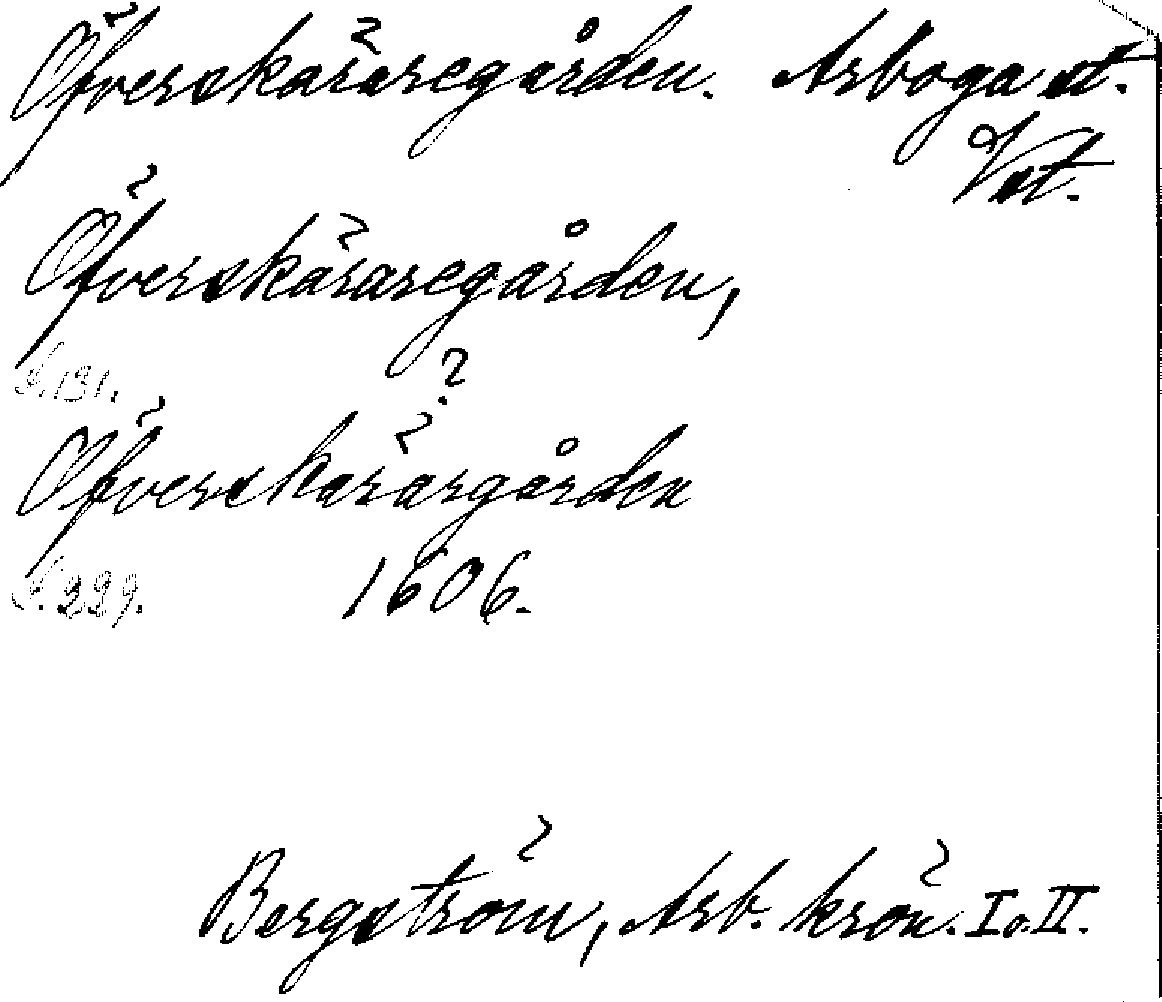 Öfverskäraregården. Arboga st.
Vst.
Öfverskäraregården,
S. 131.
?
Öfverskärargården
S. 229. 1606.
Bergström, Arb. krön. I o. II.